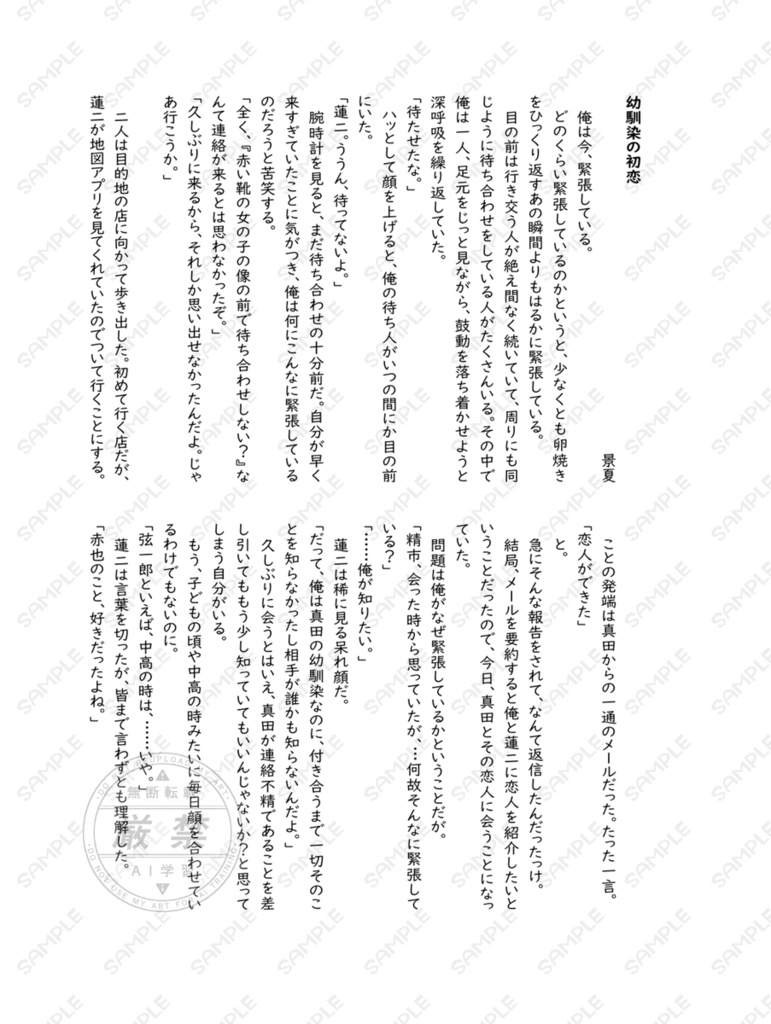 幼馴染の初恋
景夏
俺は今、緊張している。
どのくらい緊張しているのかというと、少なくとも卵焼き
をひっくり返すあの瞬間よりもはるかに緊張している。
目の前は行き交う人が絶え間なく続いていて、周りにも同
じように待ち合わせをしている人がたくさんいる。その中で
俺は一人、足元をじっと見ながら、鼓動を落ち着かせようと
深呼吸を繰り返していた。
「待たせたな。」
ハッとして顔を上げると、俺の待ち人がいつの間にか目の前
にいた。
「蓮二。ううん、待ってないよ。」
腕時計を見ると、まだ待ち合わせの十分前だ。自分が早く
来すぎていたことに気がつき、俺は何にこんなに緊張している
のだろうと苦笑する。
「全く、『赤い靴の女の子の像の前で待ち合わせしない？』な
んて連絡が来るとは思わなかったぞ。」
「久しぶりに来るから、それしか思い出せなかったんだよ。じゃ
あ行こうか。」
二人は目的地の店に向かって歩き出した。初めて行く店だが、
蓮二が地図アプリを見てくれていたのでついて行くことにする。
ことの発端は真田からの一通のメールだった。たった一言。
「恋人ができた」
と。
急にそんな報告をされて、なんて返信したんだったっけ。
結局、メールを要約すると俺と蓮二に恋人を紹介したいと
いうことだったので、今日、真田とその恋人に会うことになっ
ていた。
問題は俺がなぜ緊張しているかということだが。
「精市、会った時から思っていたが、…何故そんなに緊張して
いる？」
「……俺が知りたい。」
蓮二は稀に見る呆れ顔だ。
「だって、俺は真田の幼馴染なのに、付き合うまで一切そのこ
とを知らなかったし相手が誰かも知らないんだよ。」
久しぶりに会うとはいえ、真田が連絡不精であることを差
し引いてももう少し知っていてもいいんじゃないか？と思って
しまう自分がいる。
もう、子どもの頃や中高の時みたいに毎日顔を合わせてい
るわけでもないのに。
「弦一郎といえば、中高の時は、……いや。」
蓮二は言葉を切ったが、皆まで言わずとも理解した。
「赤也のこと、好きだったよね。」
無断転載
厳禁
AI学習
DO NOT USE MY ART FOR AI TRAINING
SAMPLE